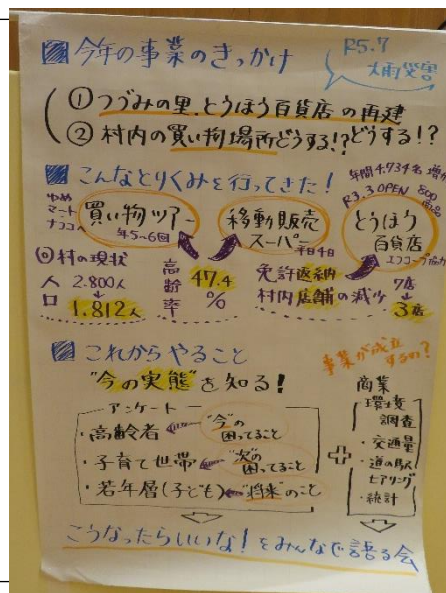 今年の事業のきっかけ
R5.7
大雨災害
① つづみの里、とうほう百貨店の再建
② 村内の買い物場所どうする!?どうする!?
こんなとりくみを行ってきた!
年間4,734名
R3.3 OPEN 800
ゆめ
マート
ナフコへ
買い物ツアー
年5~6回
移動販売
スーパー
平日4日
とうほう
百貨店
エフコープ協力
◎村の現状
人口
2.800人
1.812人
高齢率
47.4
%
免許返納
村内店舗の減少
7店
3店
これからやること
"今の実態"を知る!
事業が成立
するの?
アンケート
・高齢者
"今"の
困ってること
・子育て世帯
"次"の
困ってること
・若年層(子ども)
"将来"のこと
商業
環境
調査
・交通量
・道の駅
ヒアリング
・統計
こうなったらいいな!をみんなで語る会